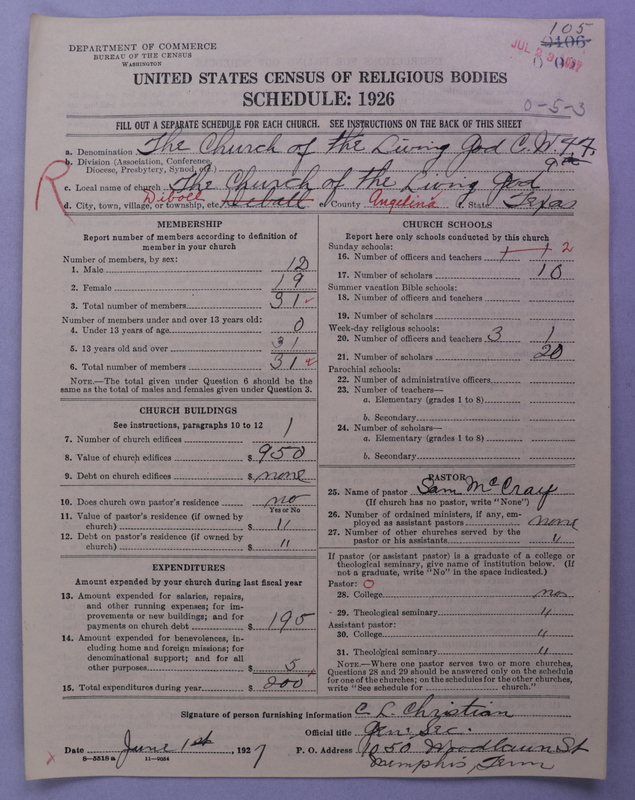 105
DEPARTMENT OF COMMERCE
BUREAU OF THE CENSUS
WASHINGTON
UNITED STATES CENSUS OF RELIGIOUS BODIES
SCHEDULE: 1926
0-5-3
FILL OUT A SEPARATE SCHEDULE FOR EACH CHURCH. SEE INSTRUCTIONS ON THE BACK OF THIS SHEET
a. Denomination The Church of the Living God C.W.F.F.
b. Division (Association, Conference, Diocese, Presbytery, Synod, etc.) 9th
R
c. Local name of church The Church of the Living God
d. City, town, village, or township, etc. Diboll e. County Angelina f. State Texas
MEMBERSHIP
Report number of members according to definition of member in your church
Number of members, by sex:
1. Male 12
2. Female 19
3. Total number of members 31
Number of members under and over 13 years old:
4. Under 13 years of age 0
5. 13 years old and over 31
6. Total number of members 31
NOTE.—The total given under Question 6 should be the same as the total of males and females given under Question 3.
CHURCH BUILDINGS
See instructions, paragraphs 10 to 12
7. Number of church edifices 1
8. Value of church edifices $ 950
9. Debt on church edifices $ none
10. Does church own pastor's residence no
Yes or No
11. Value of pastor's residence (if owned by church) $ "
12. Debt on pastor's residence (if owned by church) $ "
EXPENDITURES
Amount expended by your church during last fiscal year
13. Amount expended for salaries, repairs, and other running expenses; for improvements or new buildings; and for payments on church debt $ 195
14. Amount expended for benevolences, including home and foreign missions; for denominational support; and for all other purposes $ 5
15. Total expenditures during year $ 200
CHURCH SCHOOLS
Report here only schools conducted by this church
Sunday schools:
16. Number of officers and teachers 1 2
17. Number of scholars 10
Summer vacation Bible schools:
18. Number of officers and teachers
19. Number of scholars
Week-day religious schools:
20. Number of officers and teachers 3 1
21. Number of scholars 20
Parochial schools:
22. Number of administrative officers
23. Number of teachers—
a. Elementary (grades 1 to 8)
b. Secondary
24. Number of scholars—
a. Elementary (grades 1 to 8)
b. Secondary
PASTOR
25. Name of pastor Sam McCray
(If church has no pastor, write "None")
26. Number of ordained ministers, if any, employed as assistant pastors none
27. Number of other churches served by the pastor or his assistants "
If pastor (or assistant pastor) is a graduate of a college or theological seminary, give name of institution below. (If not a graduate, write "No" in the space indicated.)
Pastor: O
28. College no
29. Theological seminary "
Assistant pastor:
30. College "
31. Theological seminary "
NOTE.—Where one pastor serves two or more churches, Questions 28 and 29 should be answered only on the schedule for one of the churches; on the schedules for the other churches, write "See schedule for church."
Signature of person furnishing information C. L. Christian
Official title Gen. Sec.
Date June 1st, 1927
P. O. Address 1050 Woodlawn St
Memphis, Tenn
8-5518a 11-9054